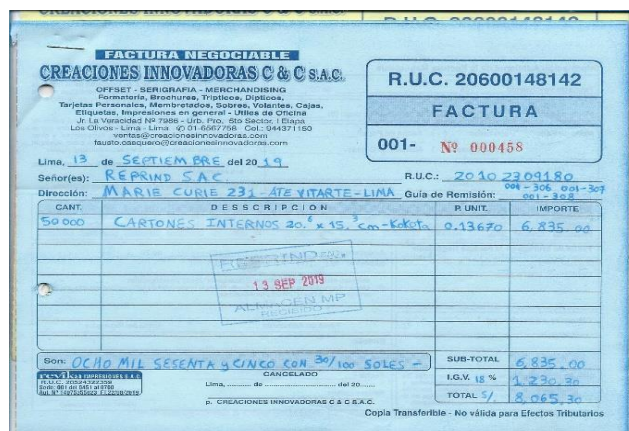 R.U.C. 20600148142
FACTURA NEGOCIABLE
CREACIONES INNOVADORAS C & C S.A.C.
OFFSET - SERIGRAFIA - MERCHANDISING
Formatería, Brochures, Trípticos, Dípticos,
Tarjetas Personales, Membretados, Sobres, Volantes, Cajas,
Etiquetas, Impresiones en general - Utiles de Oficina
Jr. La Veracidad Nº 7986 - Urb. Pro. 6to Sector, I Etapa
Los Olivos - Lima - Lima 01-6567758 Cel.: 944371150
ventas@creacionesinnovadoras.com
fausto.casquero@creacionesinnovadoras.com
R.U.C. 20600148142
FACTURA
001- Nº 000458
Lima, 13 de SEPTIEMBRE del 2019
Señor(es): REPRIND SAC R.U.C.: 20102309180
Dirección: MARIE CURIE 231 - ATE VITARTE - LIMA Guía de Remisión: 001-306 001-307
001-308
CANT. DESSCRIPCION P. UNIT. IMPORTE
50000 CARTONES INTERNOS 20.6 x 15.3 cm - Kokota 0.13670 6,835.00
13 SEP 2019
ALMACEN MP
RECIBIDO
Son: OCHO MIL SESENTA y CINCO CON 30/100 SOLES -
SUB-TOTAL 6,835.00
I.G.V. 18 % 1,230.30
TOTAL S/. 8,065.30
CANCELADO
Lima, de del 20
p. CREACIONES INNOVADORAS C & C S.A.C.
Copia Transferible - No válida para Efectos Tributarios